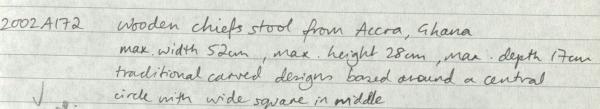 2002A172 Wooden chiefs stool from Accra, Ghana
max. width 52cm, max. height 28cm, max. depth 17cm
traditional carved designs based around a central
circle with wide square in middle